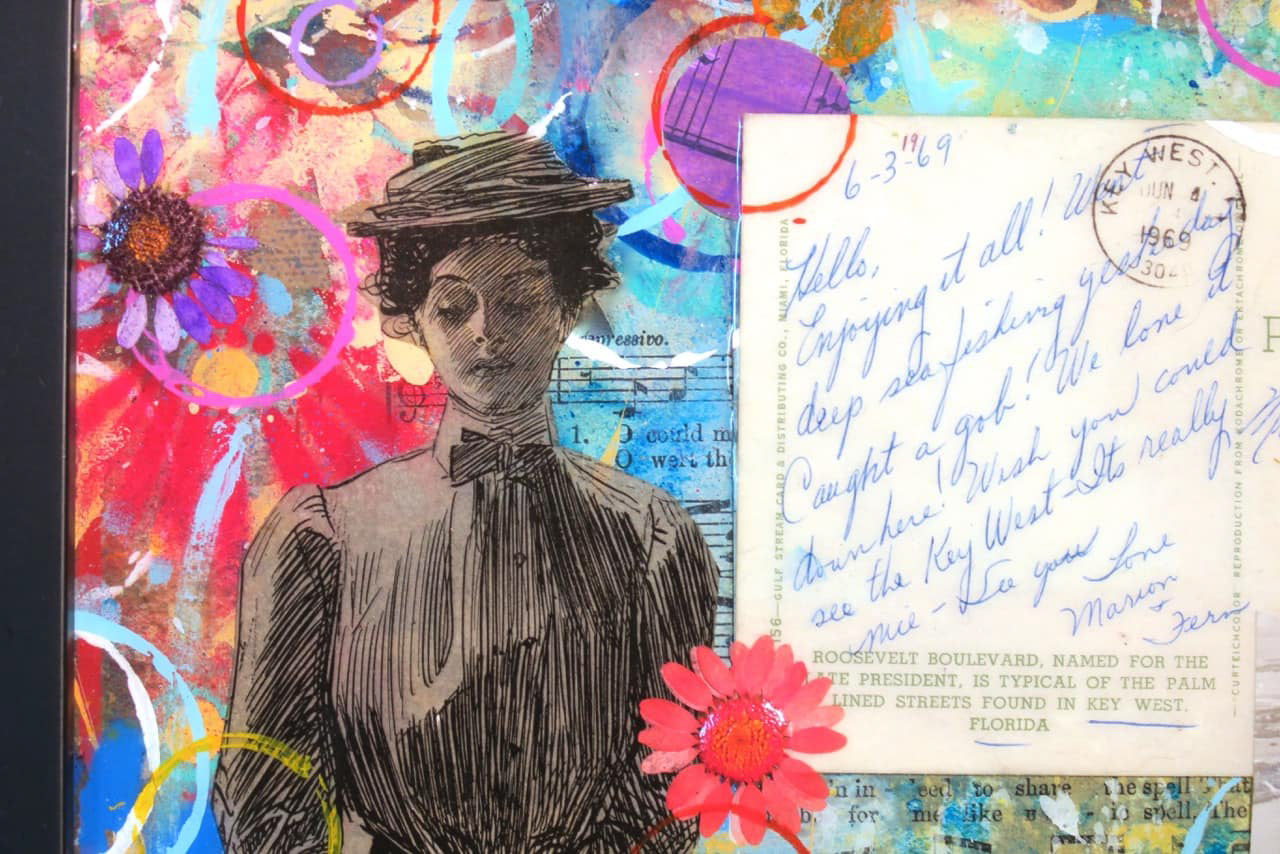 6-3-1969
Hello,
Enjoying it all! Went
deep sea fishing yesterday
Caught a gob! We love it
down here! Wish you could
see the Key West - Its really
nice - See you Love
Marion
+ Fern
KEY WEST.
JUN 4
1969
ROOSEVELT BOULEVARD, NAMED FOR THE
LATE PRESIDENT, IS TYPICAL OF THE PALM
LINED STREETS FOUND IN KEY WEST.
FLORIDA
156—GULF STREAM CARD & DISTRIBUTING CO., MIAMI, FLORIDA
CURTEICHCOLOR REPRODUCTION FROM KODACHROME OR EKTACHROME
espressivo.
1. O could m
O wert th
to share the spell
for me like
is spell. The